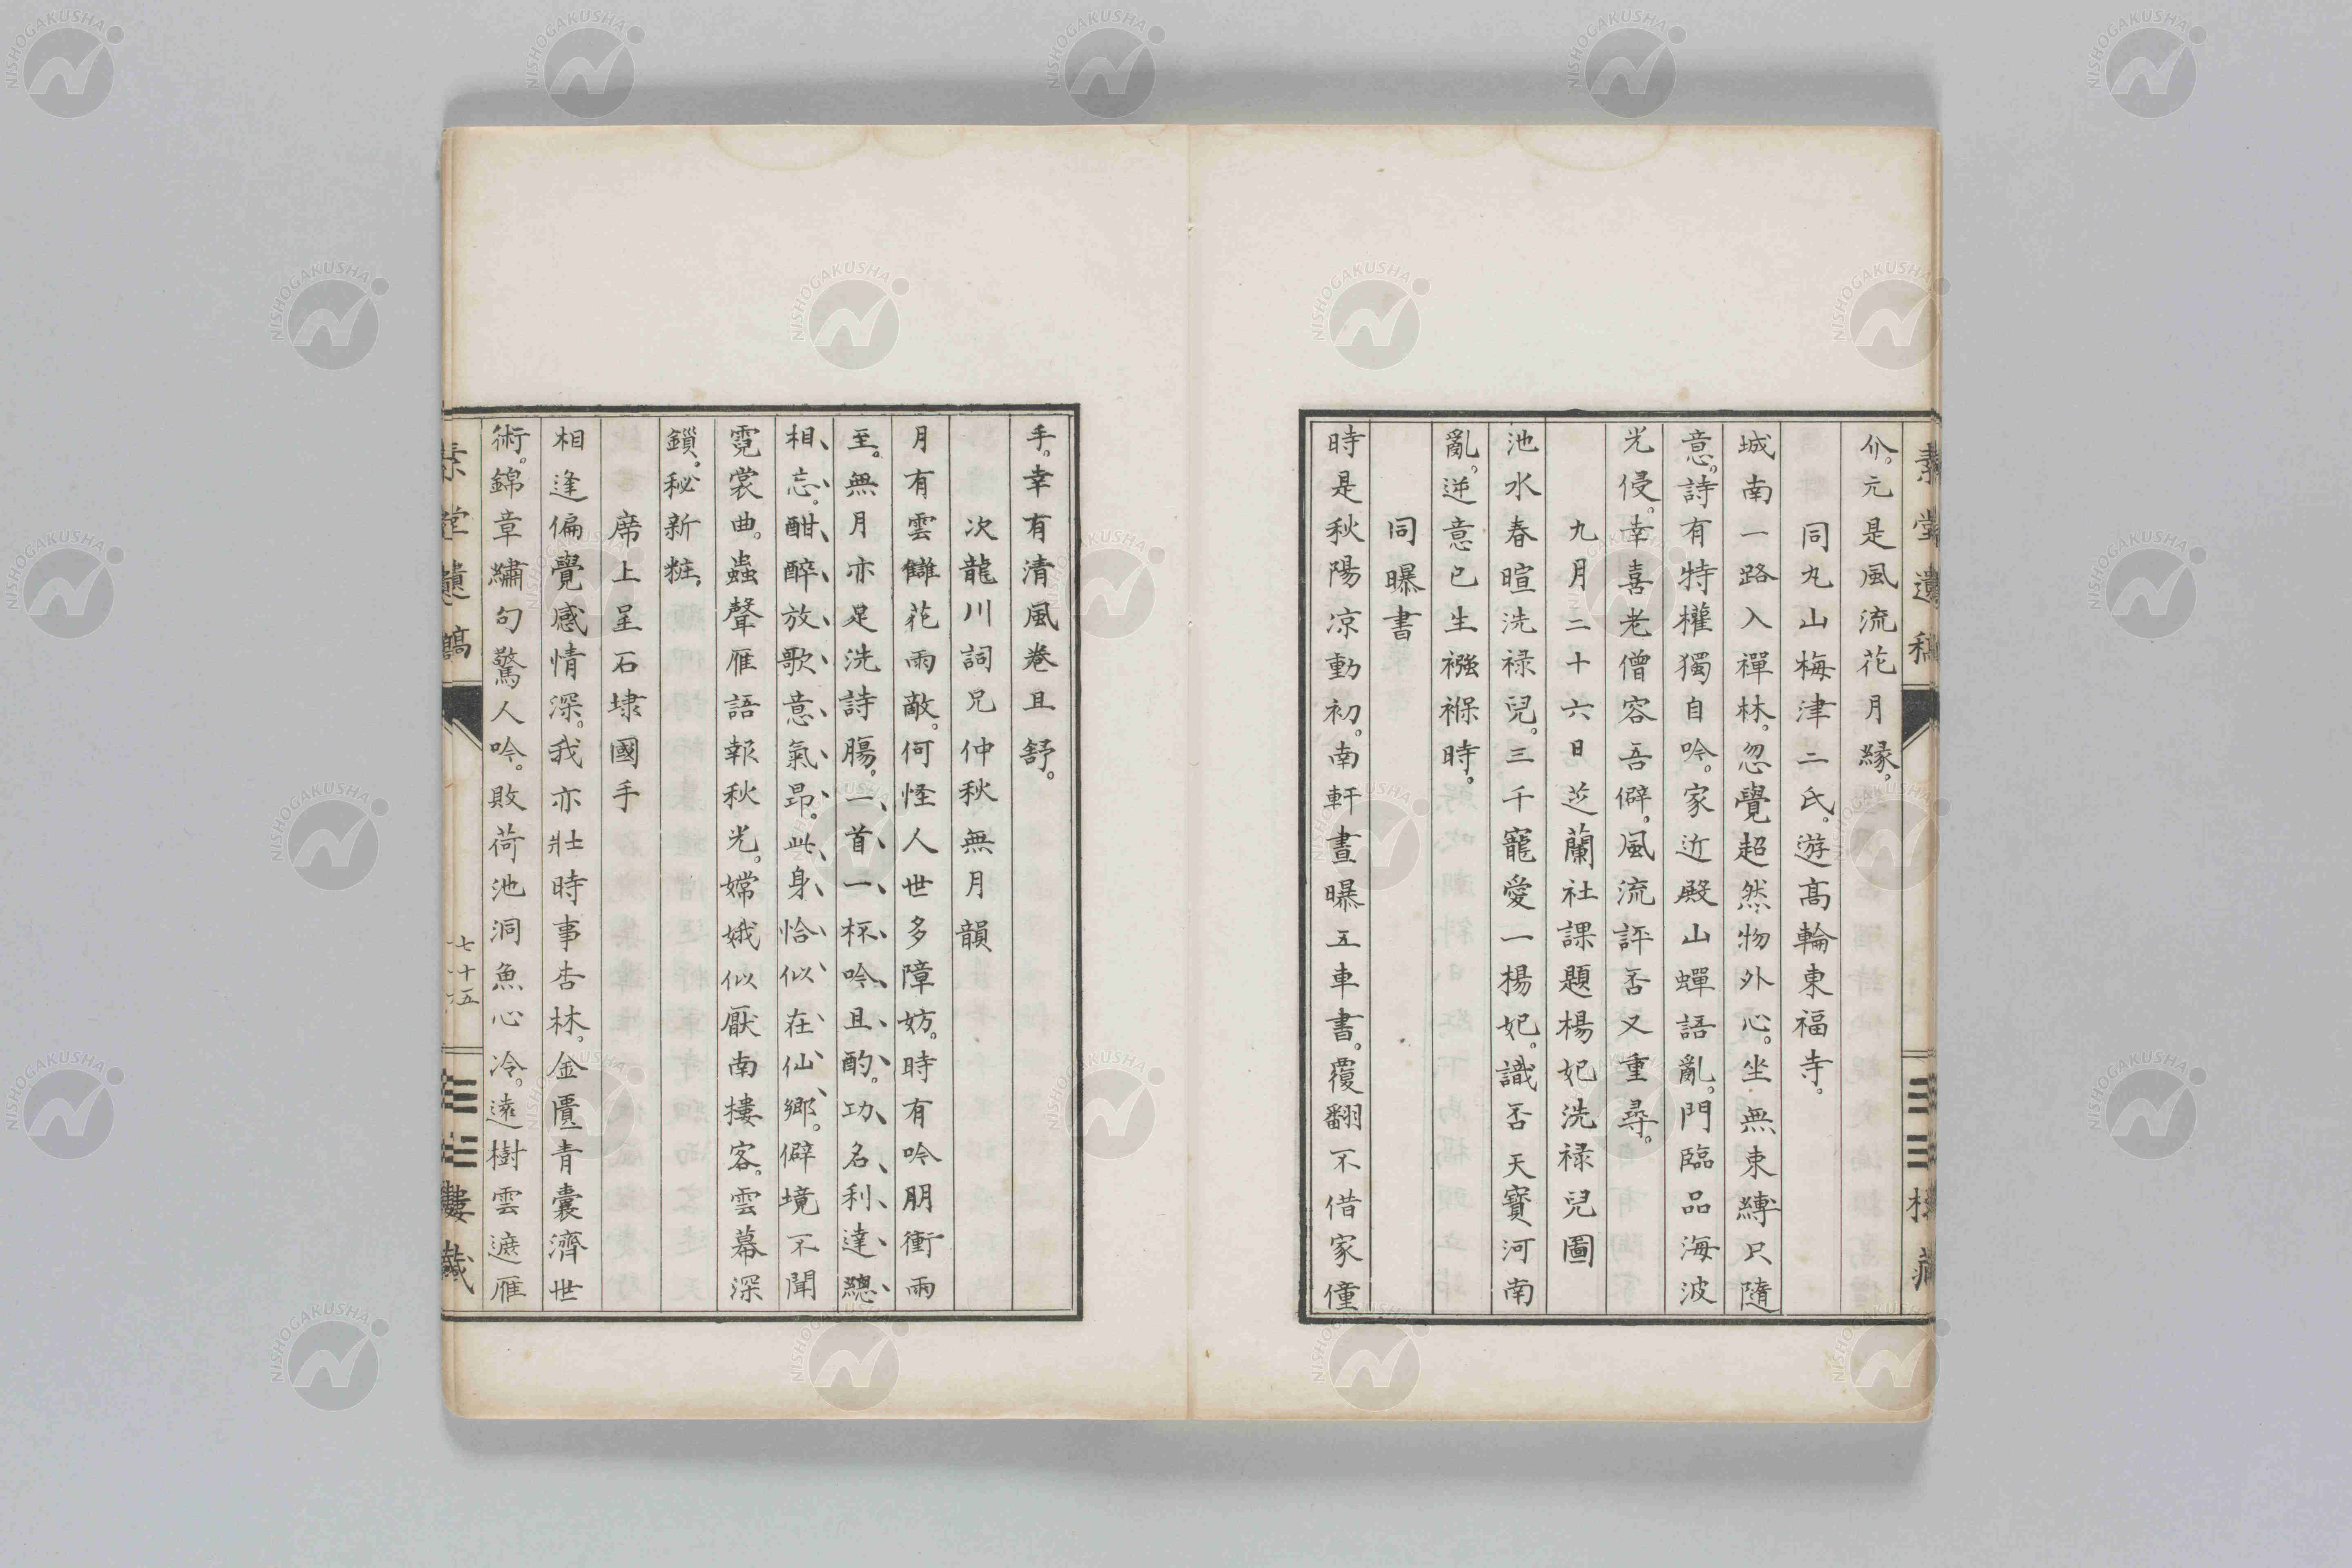 素堂遺稿
尒。元是風流花月緣。
同九山梅津二氏。遊高輪東福寺。
城南一路入禪林。忽覺超然物外心。坐無束縛只隨
意。詩有特權獨自吟。家近殿山蟬語亂。門臨品海波
光侵。幸喜老僧容吾僻。風流評否又重尋。
九月二十六日芝蘭社課題楊妃洗祿兒圖
池水春暄洗祿兒。三千寵愛一楊妃。識否天寶河南
亂。逆意已生襁褓時。
同曝書
時是秋陽凉動初。南軒晝曝五車書。覆翻不借家僮
手。幸有清風卷且舒。
次龍川詞兄仲秋無月韻
月有雲讎花雨敵。何怪人世多障妨。時有吟朋衝雨
至。無月亦足洗詩腸。一首一杯吟且酌。功名利達總
相忘。酣醉放歌意氣昂。此身恰似在仙鄉。僻境不聞
霓裳曲。蟲聲雁語報秋光。嫦娥似厭南樓客。雲幕深
鎖秘新粧。
席上呈石埭國手
相逢偏覺感情深。我亦壯時事杏林。金匱青囊濟世
術。錦章繡句驚人吟。敗荷池洞魚心冷。遠樹雲遮雁
素堂遺稿
七十五
樓藏
NISHOGAKUSHA